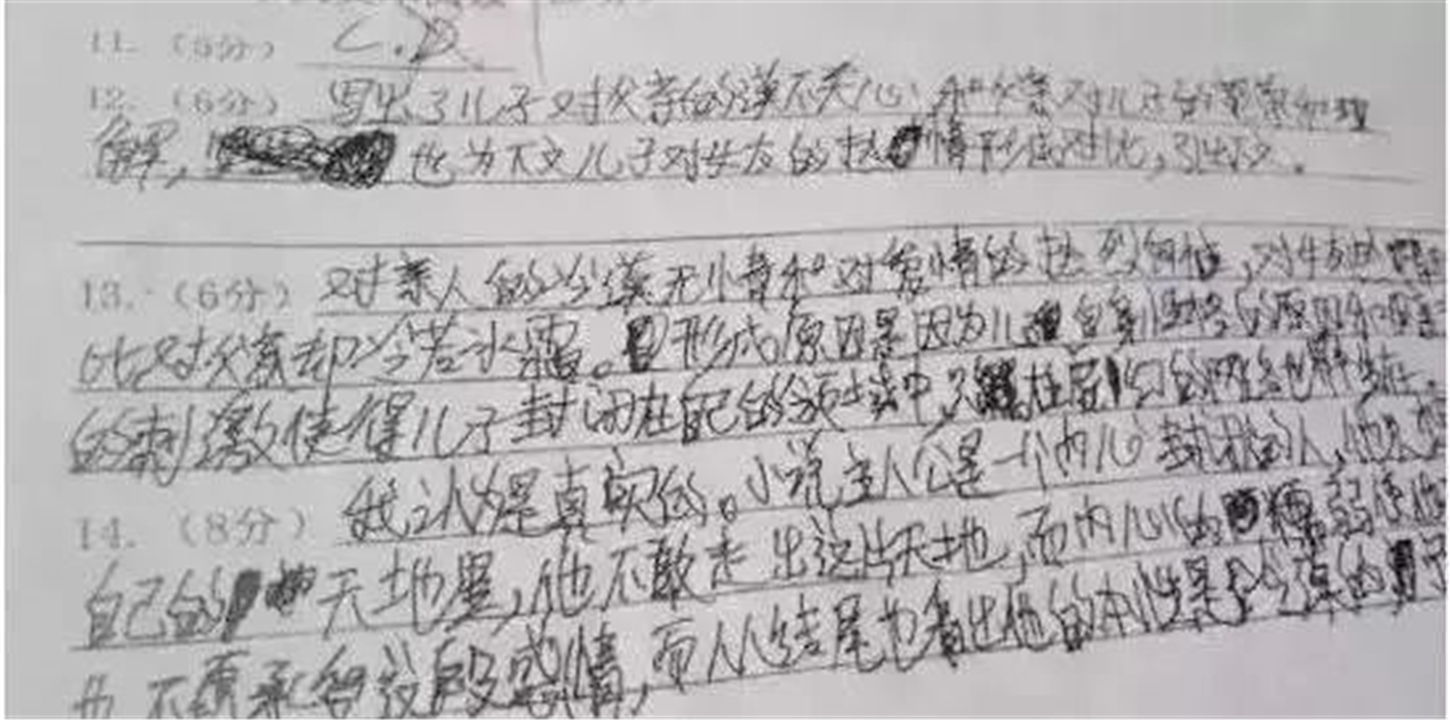 11. (5分) C.D
12. (6分) 写出了儿子对父亲的漠不关心,和父亲对儿子的 理
解, 也为下文儿子对女友的热情形成对比,引出下文。
13. (6分) 对亲人的冷漠无情和对爱情的热烈 ,对女友
比对父亲却冷若冰霜。形成原因是因为儿 自身性格的原因和
的刺激使得儿子封闭在自己的领域中,只 在虚幻的网络世界 。
14. (8分) 我认为是真实的。小说主人公是一个内心封闭的人,他
自己的 天地里,他不敢走出这片天地,而内心的懦弱使他
不愿承担这段感情,而从结尾也看出他的本性是冷漠的